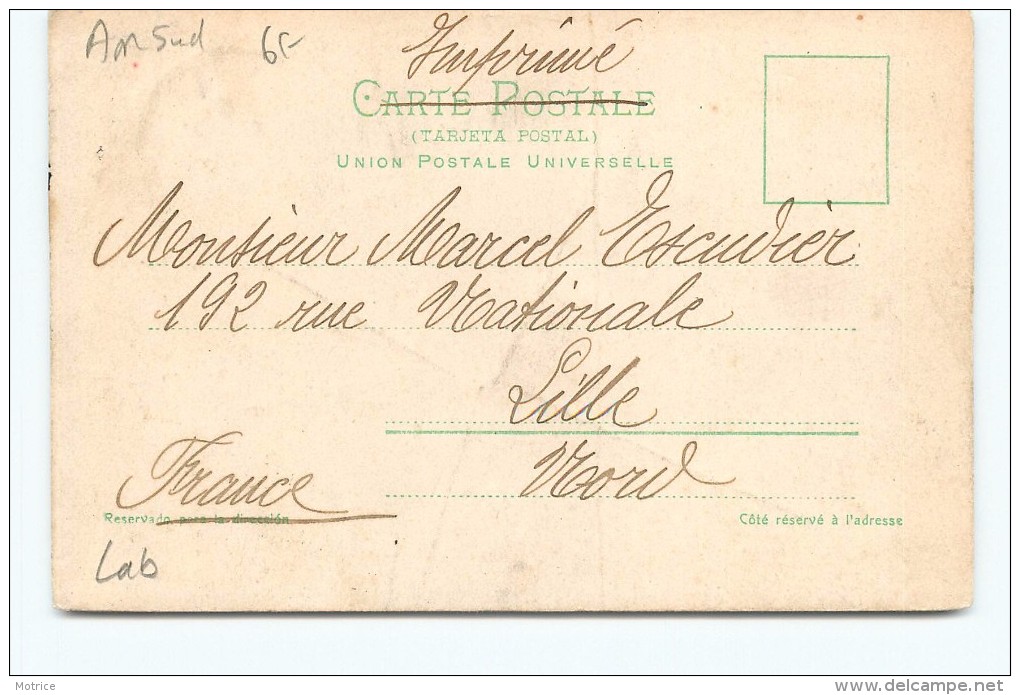 Am Sud 6F
Imprimé
CARTE POSTALE
(TARJETA POSTAL)
UNION POSTALE UNIVERSELLE
Monsieur Marcel Escudier
192 rue Nationale
Lille
Nord
France
Reservado para la dirección
Côté réservé à l'adresse
Lab
Motrice
www.delcampe.net